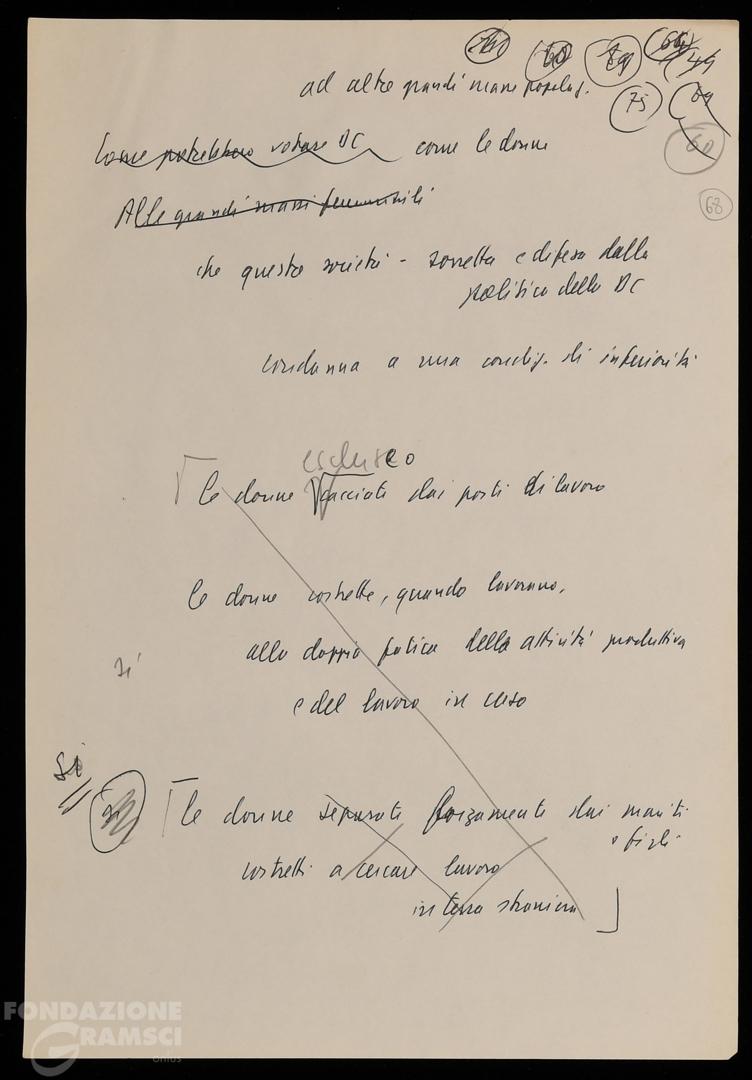 74 60 59 66 44
ad altre grandi masse popolar.
75 69
Come potrebbero votare DC come le donne
60
Alle grandi masse femminili
68
che questa società - sorretta e difesa dalla
politica della DC
condanna a una condiz. di inferiorità
escluse o
le donne cacciate dai posti di lavoro
le donne costrette, quando lavorano,
alla doppia fatica della attività produttiva
sì
e del lavoro in casa
Sì
sì le donne separate forzamente dai mariti
e figli
costretti a cercare lavoro
in terra straniera
FONDAZIONE
GRAMSCI
onlus